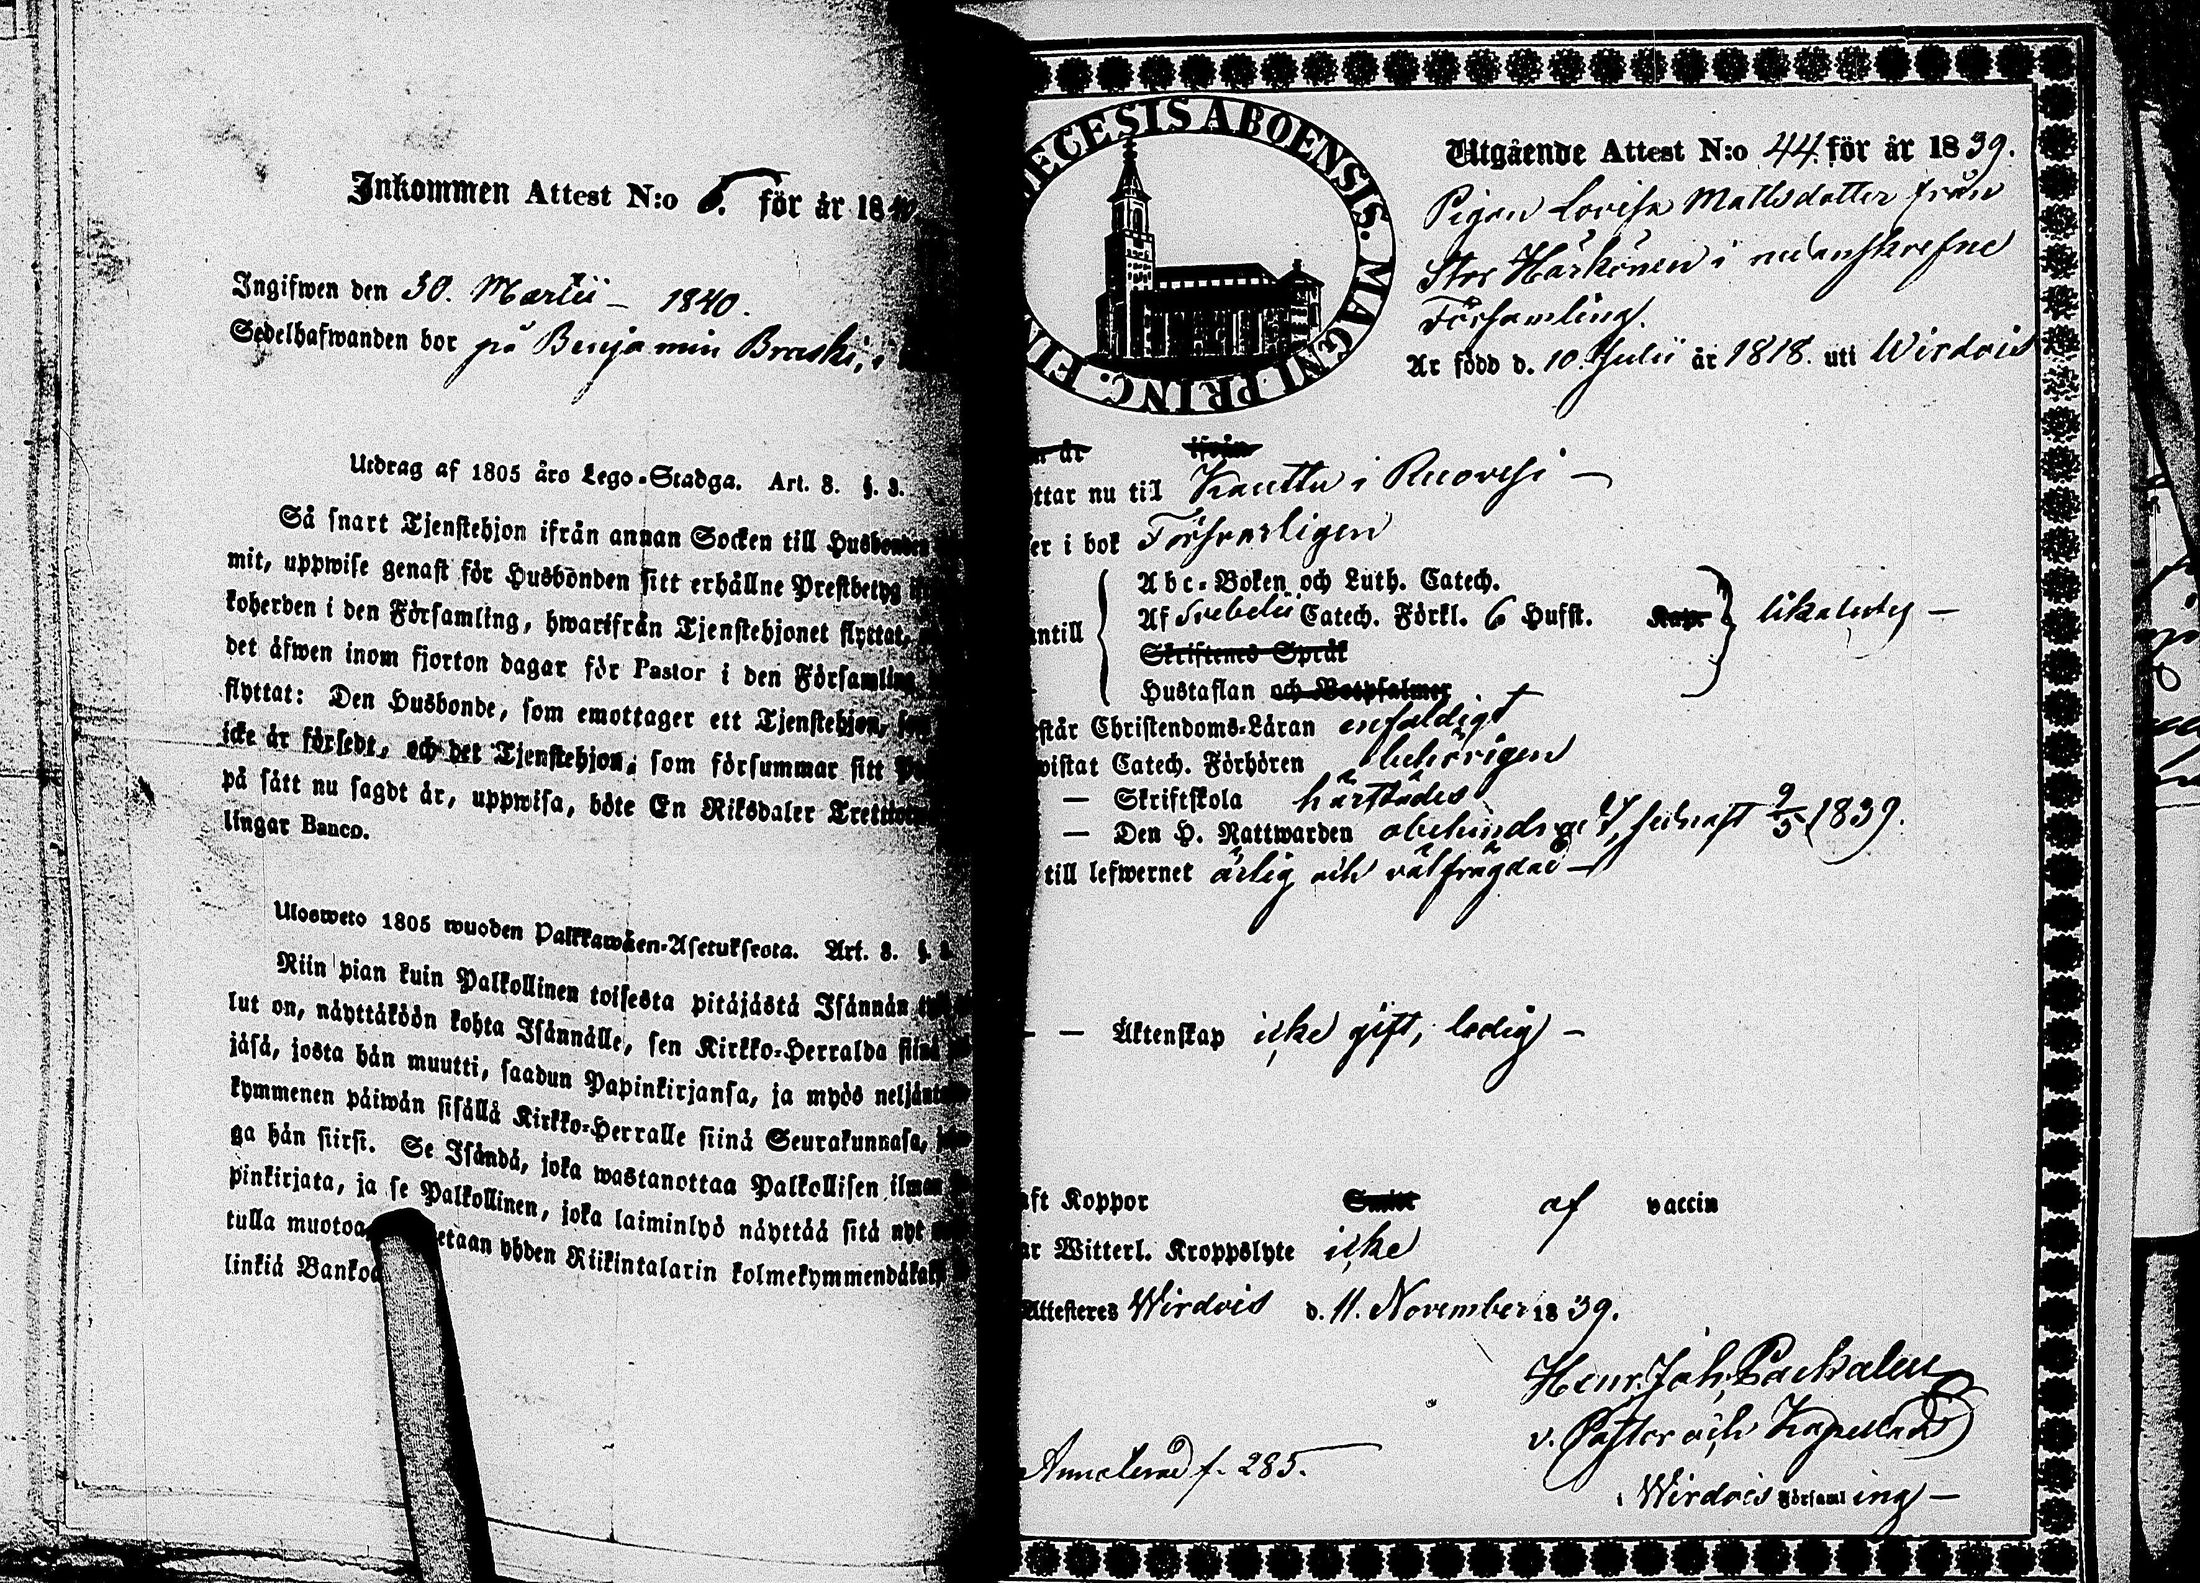 Inkommen Attest N:o 6. för år 1840
Ingifwen den 30. Martii – 1840.
Sedelhafwanden bor på Benjamin Braski, i
Utdrag af 1805 års Lego-Stadga. Art. 8. §. 3.
Så snart Tjenstehjon ifrån annan Socken till Husbonden
mit, uppwise genast för Husbonden sitt erhållne Prestbetyg
koherden i den Församling, hwarifrån Tjenstehjonet flyttat,
det äfwen inom fjorton dagar för Pastor i den Församling
flyttat: Den Husbonde, som emottager ett Tjenstehjon, som
icke är försedt, och det Tjenstehjon, som försummar sitt
på sätt nu sagdt är, uppwisa, böte En Riksdaler Trettiotwå
lingar Banco.
Ulosweto 1805 wuoden Palkkawäen-Asetuksesta. Art. 8. §. 3.
Niin pian kuin Palkollinen toisesta pitäjästä Isännän
lut on, näyttäköön kohta Isännälle, sen Kirkko-Herralda siinä
jäsä, josta hän muutti, saadun Papinkirjansa, ja myös neljäntoista
kymmenen päiwän sisällä Kirkko-Herralle siinä Seurakunnasa,
ga hän siirsi. Se Isändä, joka wastanottaa Palkollisen ilman
pinkirjata, ja se Palkollinen, joka laiminlyö näyttää sitä nyt
tulla muotoa, etaan yhden Riikintalarin kolmekymmendäkaksi
linkiä Bankoa
DIOECESIS ABOENSIS. MAGNI PRINC. FIN
Utgående Attest N:o 44. för år 1839.
Pigan Lovisa Mattsdotter från
Stor Härkönen i nedanskrefne
Församling.
Är född d. 10. Julii år 1818. uti Wirdois
n är ifrån
ttar nu til Kauttu i Ruovesi –
er i bok Försvarligen
antill
Abc-Boken och Luth. Catech.
Af Svebelii Catech. Förkl. 6 Hufst. Kap. likaledes –
Skriftenes Språk
Hustaflan och Botpsalmer
står Christendoms-Läran enfaldigt
wistat Catech. Förhören behörigen
— Skriftskola härstädes
— Den H. Nattwarden obehindrad, senast 9/5 1839.
till lefwernet ärlig och välfrägdad –
– — Äktenskap icke gift, ledig –
aft Koppor Smitt af vaccin
ar Witterl. Kroppslyte icke
Attesteres Wirdois d. 11. November 1839.
Henr. Joh. Packalen
v. Pastor och Kapellan
i Wirdois Församling –
Annoterad f. 285.